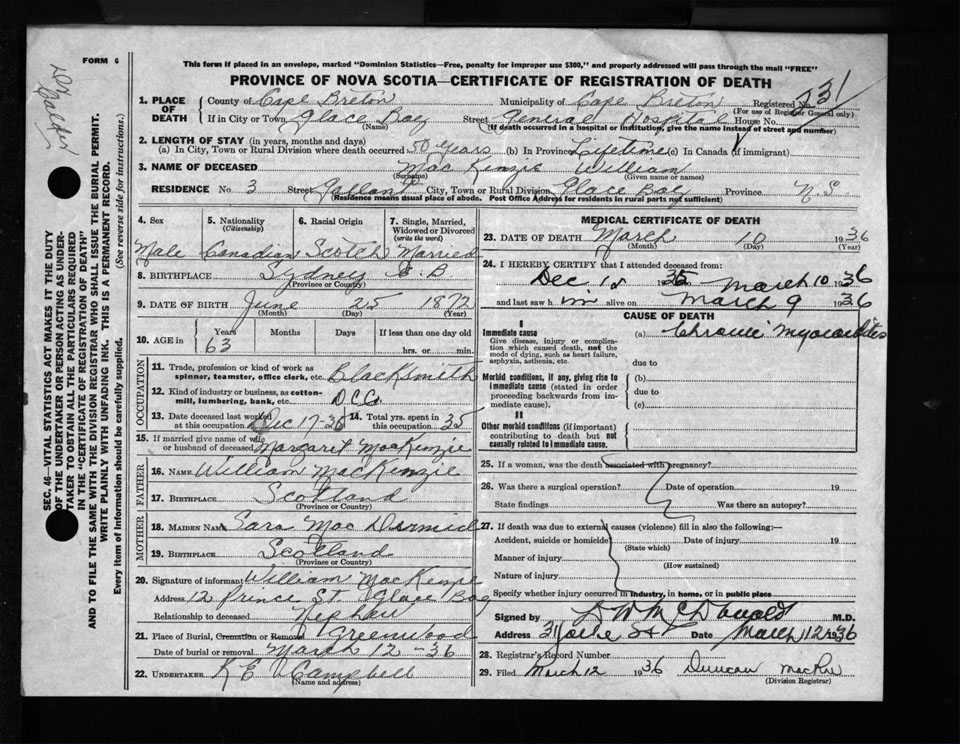 FORM 6
This form if placed in an envelope, marked "Dominion Statistics—Free, penalty for improper use $300," and properly addressed will pass through the mail "FREE"
PROVINCE OF NOVA SCOTIA—CERTIFICATE OF REGISTRATION OF DEATH
1. PLACE OF DEATH County of Cape Breton Municipality of Cape Breton Registered No. 231
(For use of Registrar General only)
If in City or Town Glace Bay Street General Hospital House No.
(Name) (If death occurred in a hospital or institution, give the name instead of street and number)
2. LENGTH OF STAY (in years, months and days)
(a) In City, Town or Rural Division where death occurred 50 years (b) In Province Lifetime (c) In Canada (if immigrant)
3. NAME OF DECEASED Mac Kenzie William
(Surname) (Given name or names)
RESIDENCE No. 3 Street Gallant City, Town or Rural Division Glace Bay Province N.S
(Residence means usual place of abode. Post Office Address for residents in rural parts not sufficient)
4. Sex 5. Nationality (Citizenship) 6. Racial Origin 7. Single, Married, Widowed or Divorced (write the word)
Male Canadian Scotch Married
8. BIRTHPLACE Sydney C.B
(Province or County)
9. DATE OF BIRTH June 25 1872
(Month) (Day) (Year)
10. AGE in Years Months Days If less than one day old
63 hrs. or min.
OCCUPATION
11. Trade, profession or kind of work as spinner, teamster, office clerk, etc. Blacksmith
12. Kind of industry or business, as cotton-mill, lumbering, bank, etc. D.C.C.
13. Date deceased last worked at this occupation Dec 17-36 14. Total yrs. spent in this occupation 35
15. If married give name of wife or husband of deceased Margaret MacKenzie
FATHER
16. NAME William MacKenzie
17. BIRTHPLACE Scotland
(Province or Country)
MOTHER
18. MAIDEN NAME Sara Mac Dermid
19. BIRTHPLACE Scotland
(Province or Country)
20. Signature of informant William MacKenzie
Address 12 Prince St. Glace Bay
Relationship to deceased Nephew
21. Place of Burial, Cremation or Removal Greenwood
Date of burial or removal March 12 - 36
22. UNDERTAKER K E Campbell
(Name and address)
MEDICAL CERTIFICATE OF DEATH
23. DATE OF DEATH March 10 1936
(Month) (Day) (Year)
24. I HEREBY CERTIFY that I attended deceased from:
Dec 18 1935 March 10 1936
and last saw h m alive on March 9 1936
CAUSE OF DEATH
I
Immediate cause (a) Chronic Myocarditis
Give disease, injury or complication which caused death, not the mode of dying, such as heart failure, asphyxia, asthenia, etc.
due to
Morbid conditions, if any, giving rise to immediate cause (stated in order proceeding backwards from immediate cause).
(b)
due to
(c)
II
Other morbid conditions (if important) contributing to death but not causally related to immediate cause.
25. If a woman, was the death associated with pregnancy?
26. Was there a surgical operation? Date of operation 19
State findings Was there an autopsy?
27. If death was due to external causes (violence) fill in also the following:—
Accident, suicide or homicide? Date of injury 19
(State which)
Manner of injury
(How sustained)
Nature of injury
Specify whether injury occurred in industry, in home, or in public place
Signed by McDonald M.D.
Address Date March 12 1936
28. Registrar's Record Number
29. Filed March 12 1936 Duncan MacRae
(Division Registrar)
SEC. 46—VITAL STATISTICS ACT MAKES IT THE DUTY OF THE UNDERTAKER OR PERSON ACTING AS UNDERTAKER TO OBTAIN ALL THE PARTICULARS REQUIRED IN THE "CERTIFICATE OF REGISTRATION OF DEATH" AND TO FILE THE SAME WITH THE DIVISION REGISTRAR WHO SHALL ISSUE THE BURIAL PERMIT.
WRITE PLAINLY WITH UNFADING INK. THIS IS A PERMANENT RECORD.
Every item of Information should be carefully supplied. (See reverse side for instructions.)